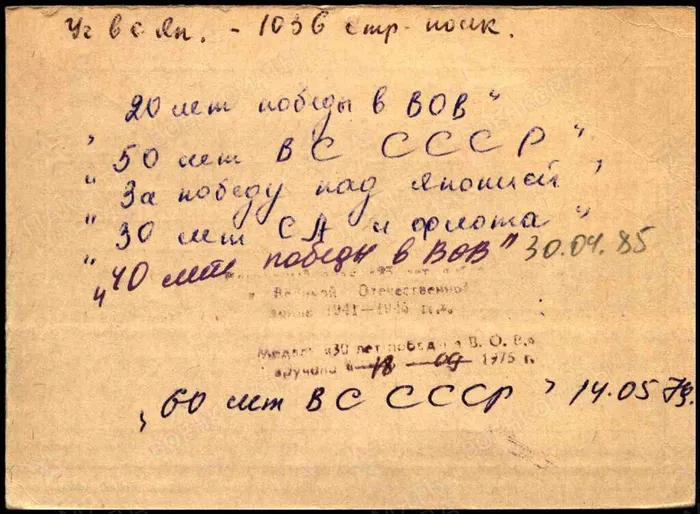 Уч в с яп. - 1036 стр. полк.
"20 лет победы в ВОВ"
"50 лет ВС СССР"
"За победу над Японией"
"30 лет СА и флота"
"40 лет победы в ВОВ" 30.04.85
лет
в Великой Отечественной
войне 1941—1945 гг.»
Медаль «30 лет победы в В. О. В.»
вручена «18 — 09 1975 г.
"60 лет ВС СССР" 14.05.79.